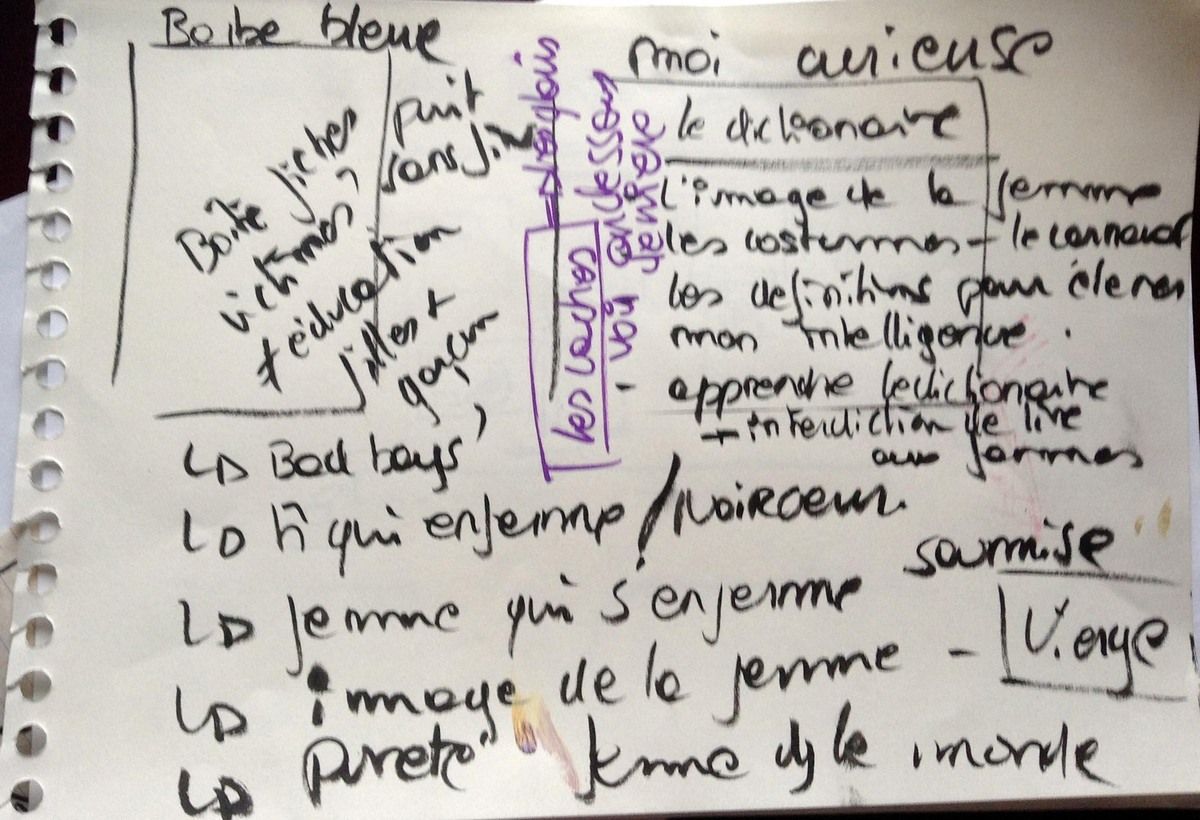 Boibe bleue
puit
sans fin
Boite fiches
victimes,
+ éducation
filles +
garçon
moi curieuse
le dictionaire
l'image de la femme
les costumes - le carnaval
les définitions pour élever
mon intelligence.
apprendre le dictionaire
+ interdiction de lire
aux femmes
↳ Bad boys
↳ h qui enferme / Noirceur
↳ femme qui s'enferme
soumise
↳ image de la femme -
Vierge
↳ pureté femme ds le monde